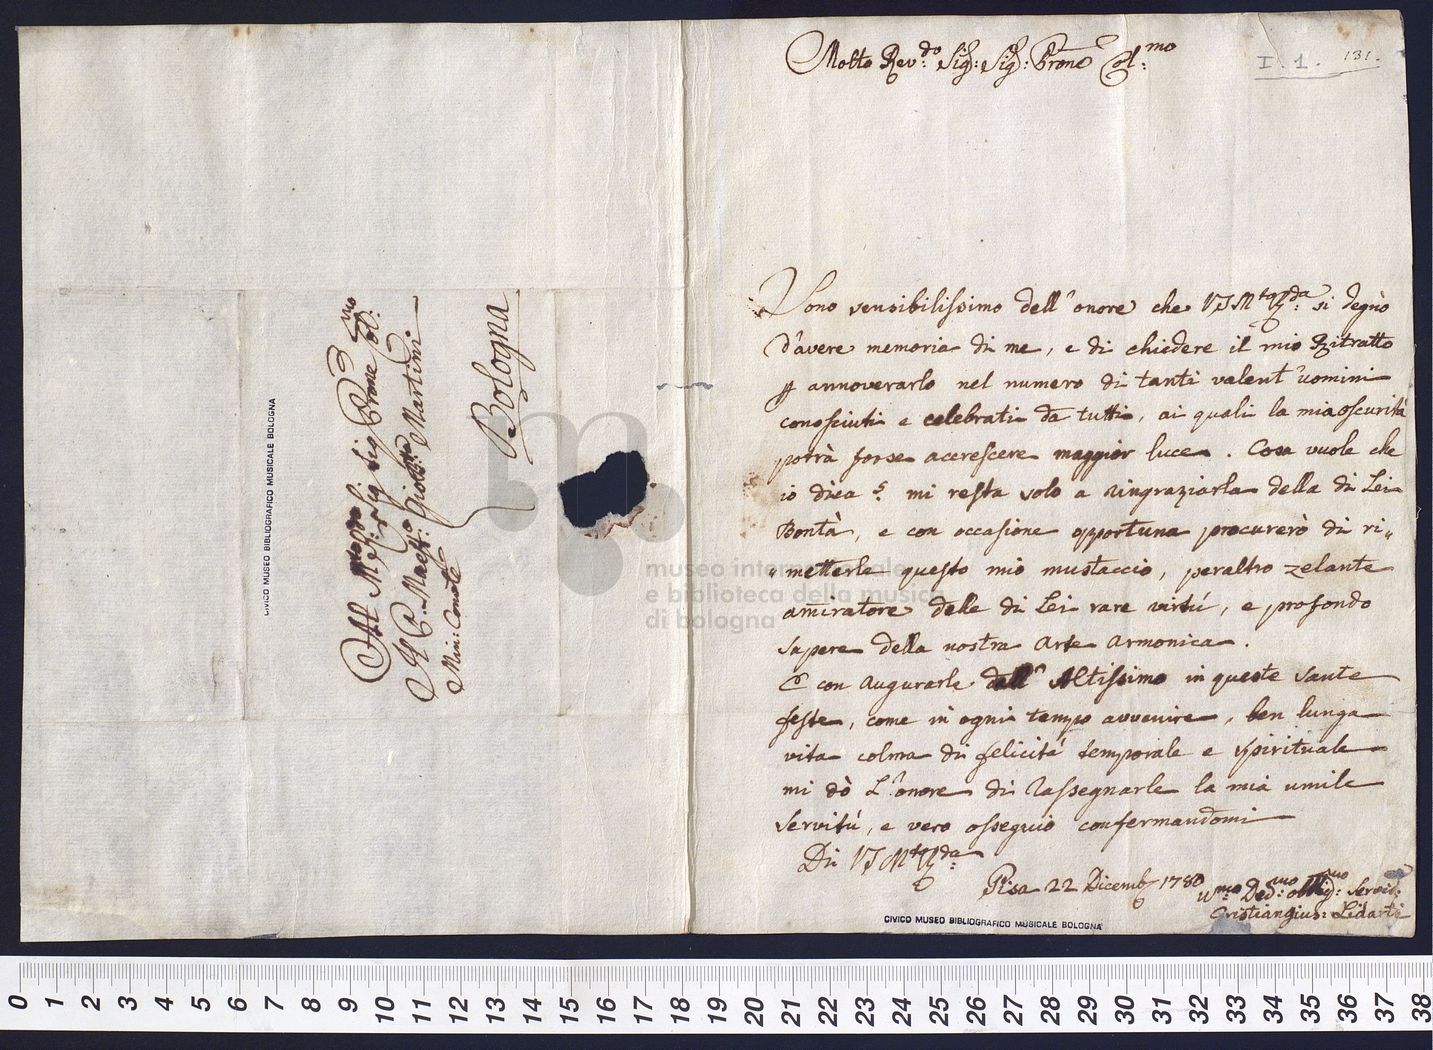 Molto Rev:do Sig: Sig: Prone Col:mo
I. 1.
131.
Sono sensibilissimo dell'onore che VS si degnò
d'avere memoria di me, e di chiedere il mio Ritratto
annoverarlo nel numero di tanti valent'uomini
conosciuti e celebrati da tutti, ai quali la mia oscurità
potrà forse accrescere maggior luce. Cosa vuole che
io dica? mi resta solo a ringraziarla della di Lei
Bontà, e con occasione opportuna procurerò di ri„
„metterle questo mio mustaccio, peraltro zelante
amiratore delle di Lei rare virtú, e profondo
sapere della nostra Arte Armonica.
E con Augurarle dall'Altissimo in queste sante
feste, come in ogni tempo avvenire, ben lunga
vita colma di felicitá temporale e spirituale
mi dò L'onore di rassegnarle la mia umile
servitú, e vero ossequio confermandomi
Di VS
Pisa 22 Dicemb 1780
Servit:
Cristiangius: Lidarti
CIVICO MUSEO BIBLIOGRAFICO MUSICALE BOLOGNA
Sig Prone Col:mo
Il P: Maest: Giob: Martini
Min: Conv:le
Bologna
CIVICO MUSEO BIBLIOGRAFICO MUSICALE BOLOGNA
museo internazionale
e biblioteca della musica
di bologna
0 1 2 3 4 5 6 7 8 9 10 11 12 13 14 15 16 17 18 19 20 21 22 23 24 25 26 27 28 29 30 31 32 33 34 35 36 37 38